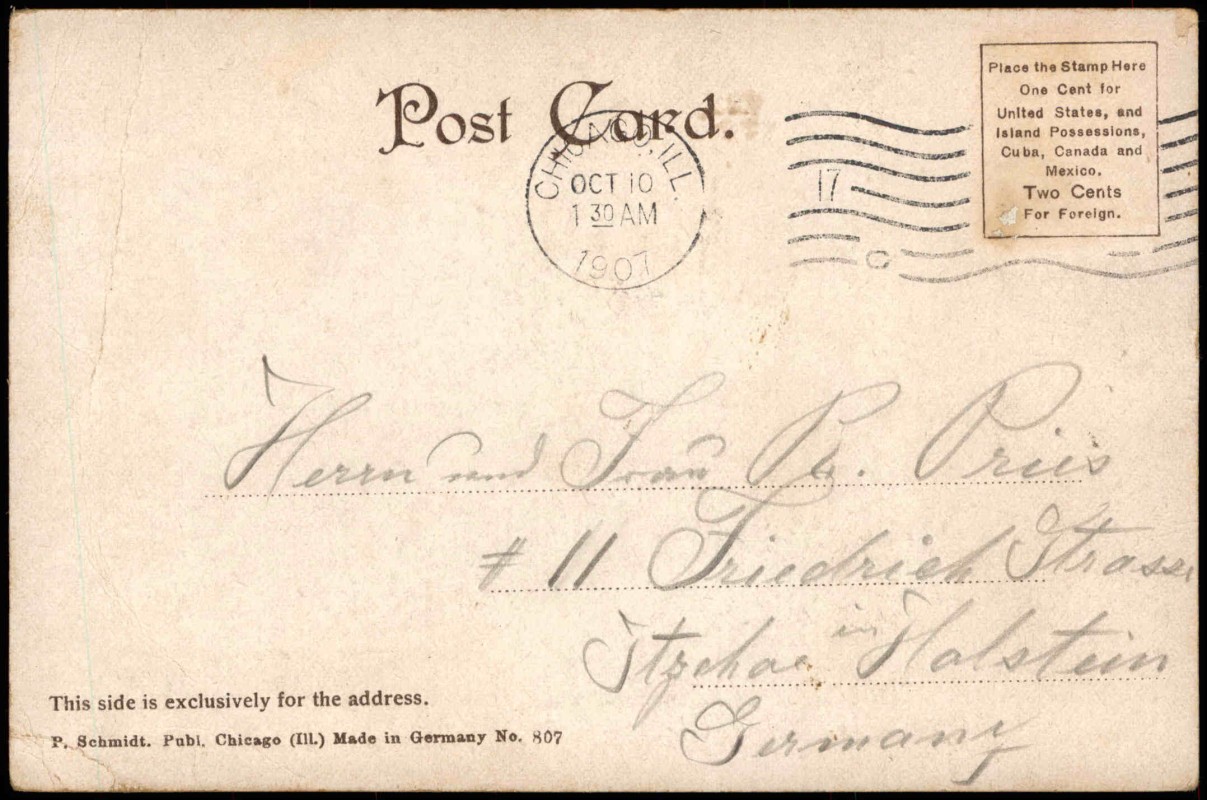 Post Card.
CHICAGO, ILL.
OCT 10
1 30 AM
1907
17
C
Place the Stamp Here
One Cent for
United States, and
Island Possessions,
Cuba, Canada and
Mexico.
Two Cents
For Foreign.
Herrn und Frau Pries
# 11 Friedrich Strasse
Itzehoe in Holstein
Germany
This side is exclusively for the address.
P. Schmidt. Publ. Chicago (Ill.) Made in Germany No. 807